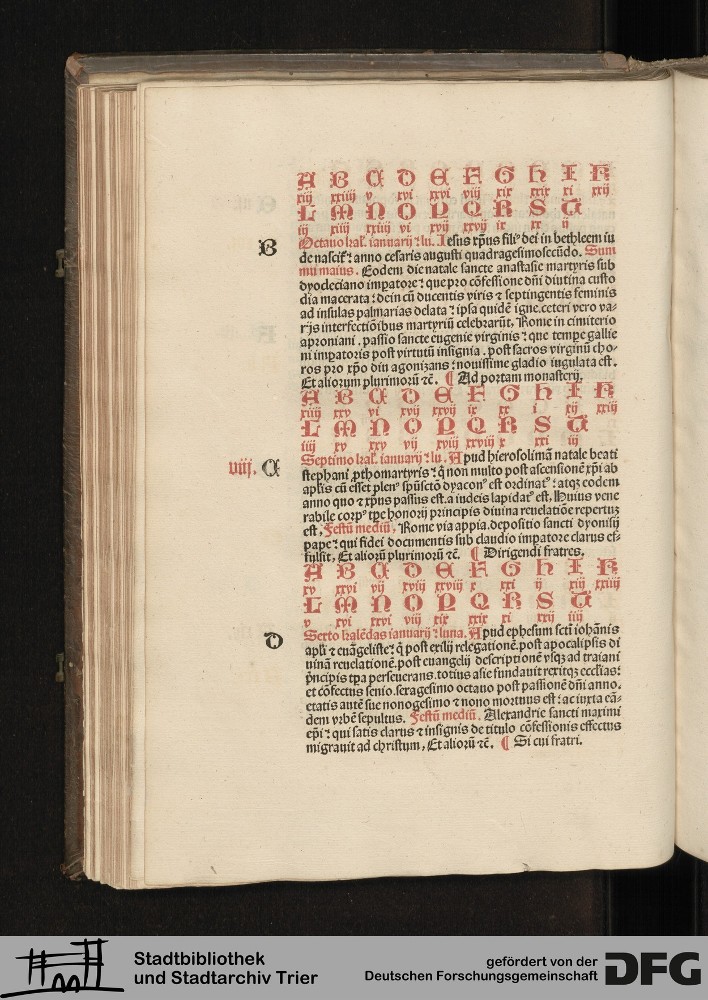 A B C D E F G H I K
xiij xxiiij v xv xxvi viij xix xxix xi xxij
L M N O P Q R S T
iij xiij xxiiij vi xvij xxvij ix xx ij
B
Octauo kal'. ianuarij ⁊ lu. Iesus xp̄us filiꝰ dei in bethleem iu
de nascit̄: anno cesaris augusti quadragesimosecūdo. Sum
mu maius. Eodem die natale sancte anastasie martyris sub
dyodeciano impatore: que pro cōfessione dn̄i diutina custo
dia macerata: dein cū ducentis viris ⁊ septingentis feminis
ad insulas palmarias delata: ipsa quidē igne. ceteri vero va-
rijs interfectiōibus martyriū celebrarūt, Rome in cimiterio
aproniani. passio sancte eugenie virginis: que tempe gallie
ni impatoris post virtutū insignia. post sacros virginū cho-
ros pro xp̄o diu agonizans: nouissime gladio iugulata est.
Et aliorum plurimorū ⁊c̄. ¶ Ad portam monasterij.
A B C D E F G H I K
xiiij xxv vi xvij xxvij ix xx i xij xxiij
L M N O P Q R S T
iiij xv xxv vij xviij xxviij x xxi iij
viij. C
Septimo kal'. ianuarij ⁊ lu. Apud hierosolimā natale beati
stephani ꝓthomartyris: q̄ non multo post ascensionē xp̄i ab
aplis cū esset plenꝰ spūsctō dyaconꝰ est ordinatꝰ: atqꝫ eodem
anno quo ⁊ xp̄us passus est. a iudeis lapidatꝰ est, Huius vene
rabile corpꝰ tp̄e honorij principis diuina reuelatiōe repertuꝫ
est, Festū mediū. Rome via appia. depositio sancti dyonisij
pape: qui fidei documentis sub claudio impatore clarus ef-
fulsit, Et aliorū plurimorū ⁊c̄. ¶ Dirigendi fratres.
A B C D E F G H I K
xv xxvi vij xviij xxviij x xxi ij xiij xxiiij
L M N O P Q R S T
v xvi xxvi viij xix xxix xi xxij iiij
D
Sexto kalēdas ianuarij ⁊ luna. Apud ephesum scti iohānis
apli ⁊ euāgeliste: q̄ post exilij relegationē. post apocalipsis di
uinā reuelationē. post euangelij descriptionē vsqꝫ ad traiani
pncipis tpa perseuerans. totius asie fundauit rexitqꝫ eccliās:
et cōfectus senio. sexagesimo octauo post passionē dn̄i anno.
etatis autē sue nonogesimo ⁊ nono mortuus est: ac iuxta eā-
dem vrbē sepultus. Festū mediū. Alexandrie sancti maximi
ep̄i: qui satis clarus ⁊ insignis de titulo cōfessionis effectus
migrauit ad christum, Et aliorū ⁊c̄. ¶ Si cui fratri.
Stadtbibliothek
und Stadtarchiv Trier
gefördert von der
Deutschen Forschungsgemeinschaft
DFG